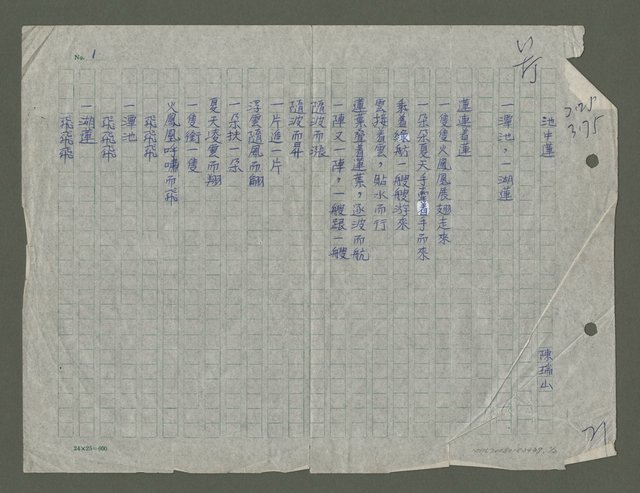 No. 1
池中蓮
陳瑞山
一潭池，一湖蓮
蓮連着蓮
一隻隻火鳳凰展翅走來
一朵朵夏天手牽着手而來
乘着綠航一艘艘游來
雲接着雲，貼水而行
蓮葉疊着蓮葉，逐波而航
一陣又一陣，一艘跟一艘
隨波而漲
隨波而昇
一片追一片
浮雲隨風而翩
一朵扶一朵
夏天凌雲而翔
一隻銜一隻
火鳳凰呼嘯而飛
飛飛飛
一潭池
飛飛飛
一湖蓮
飛飛飛
24×25=600